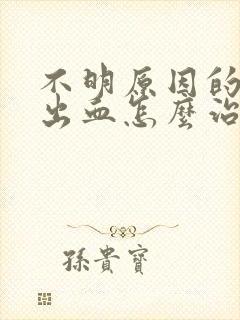 不明原因的
出血怎麼治
孫貴寶